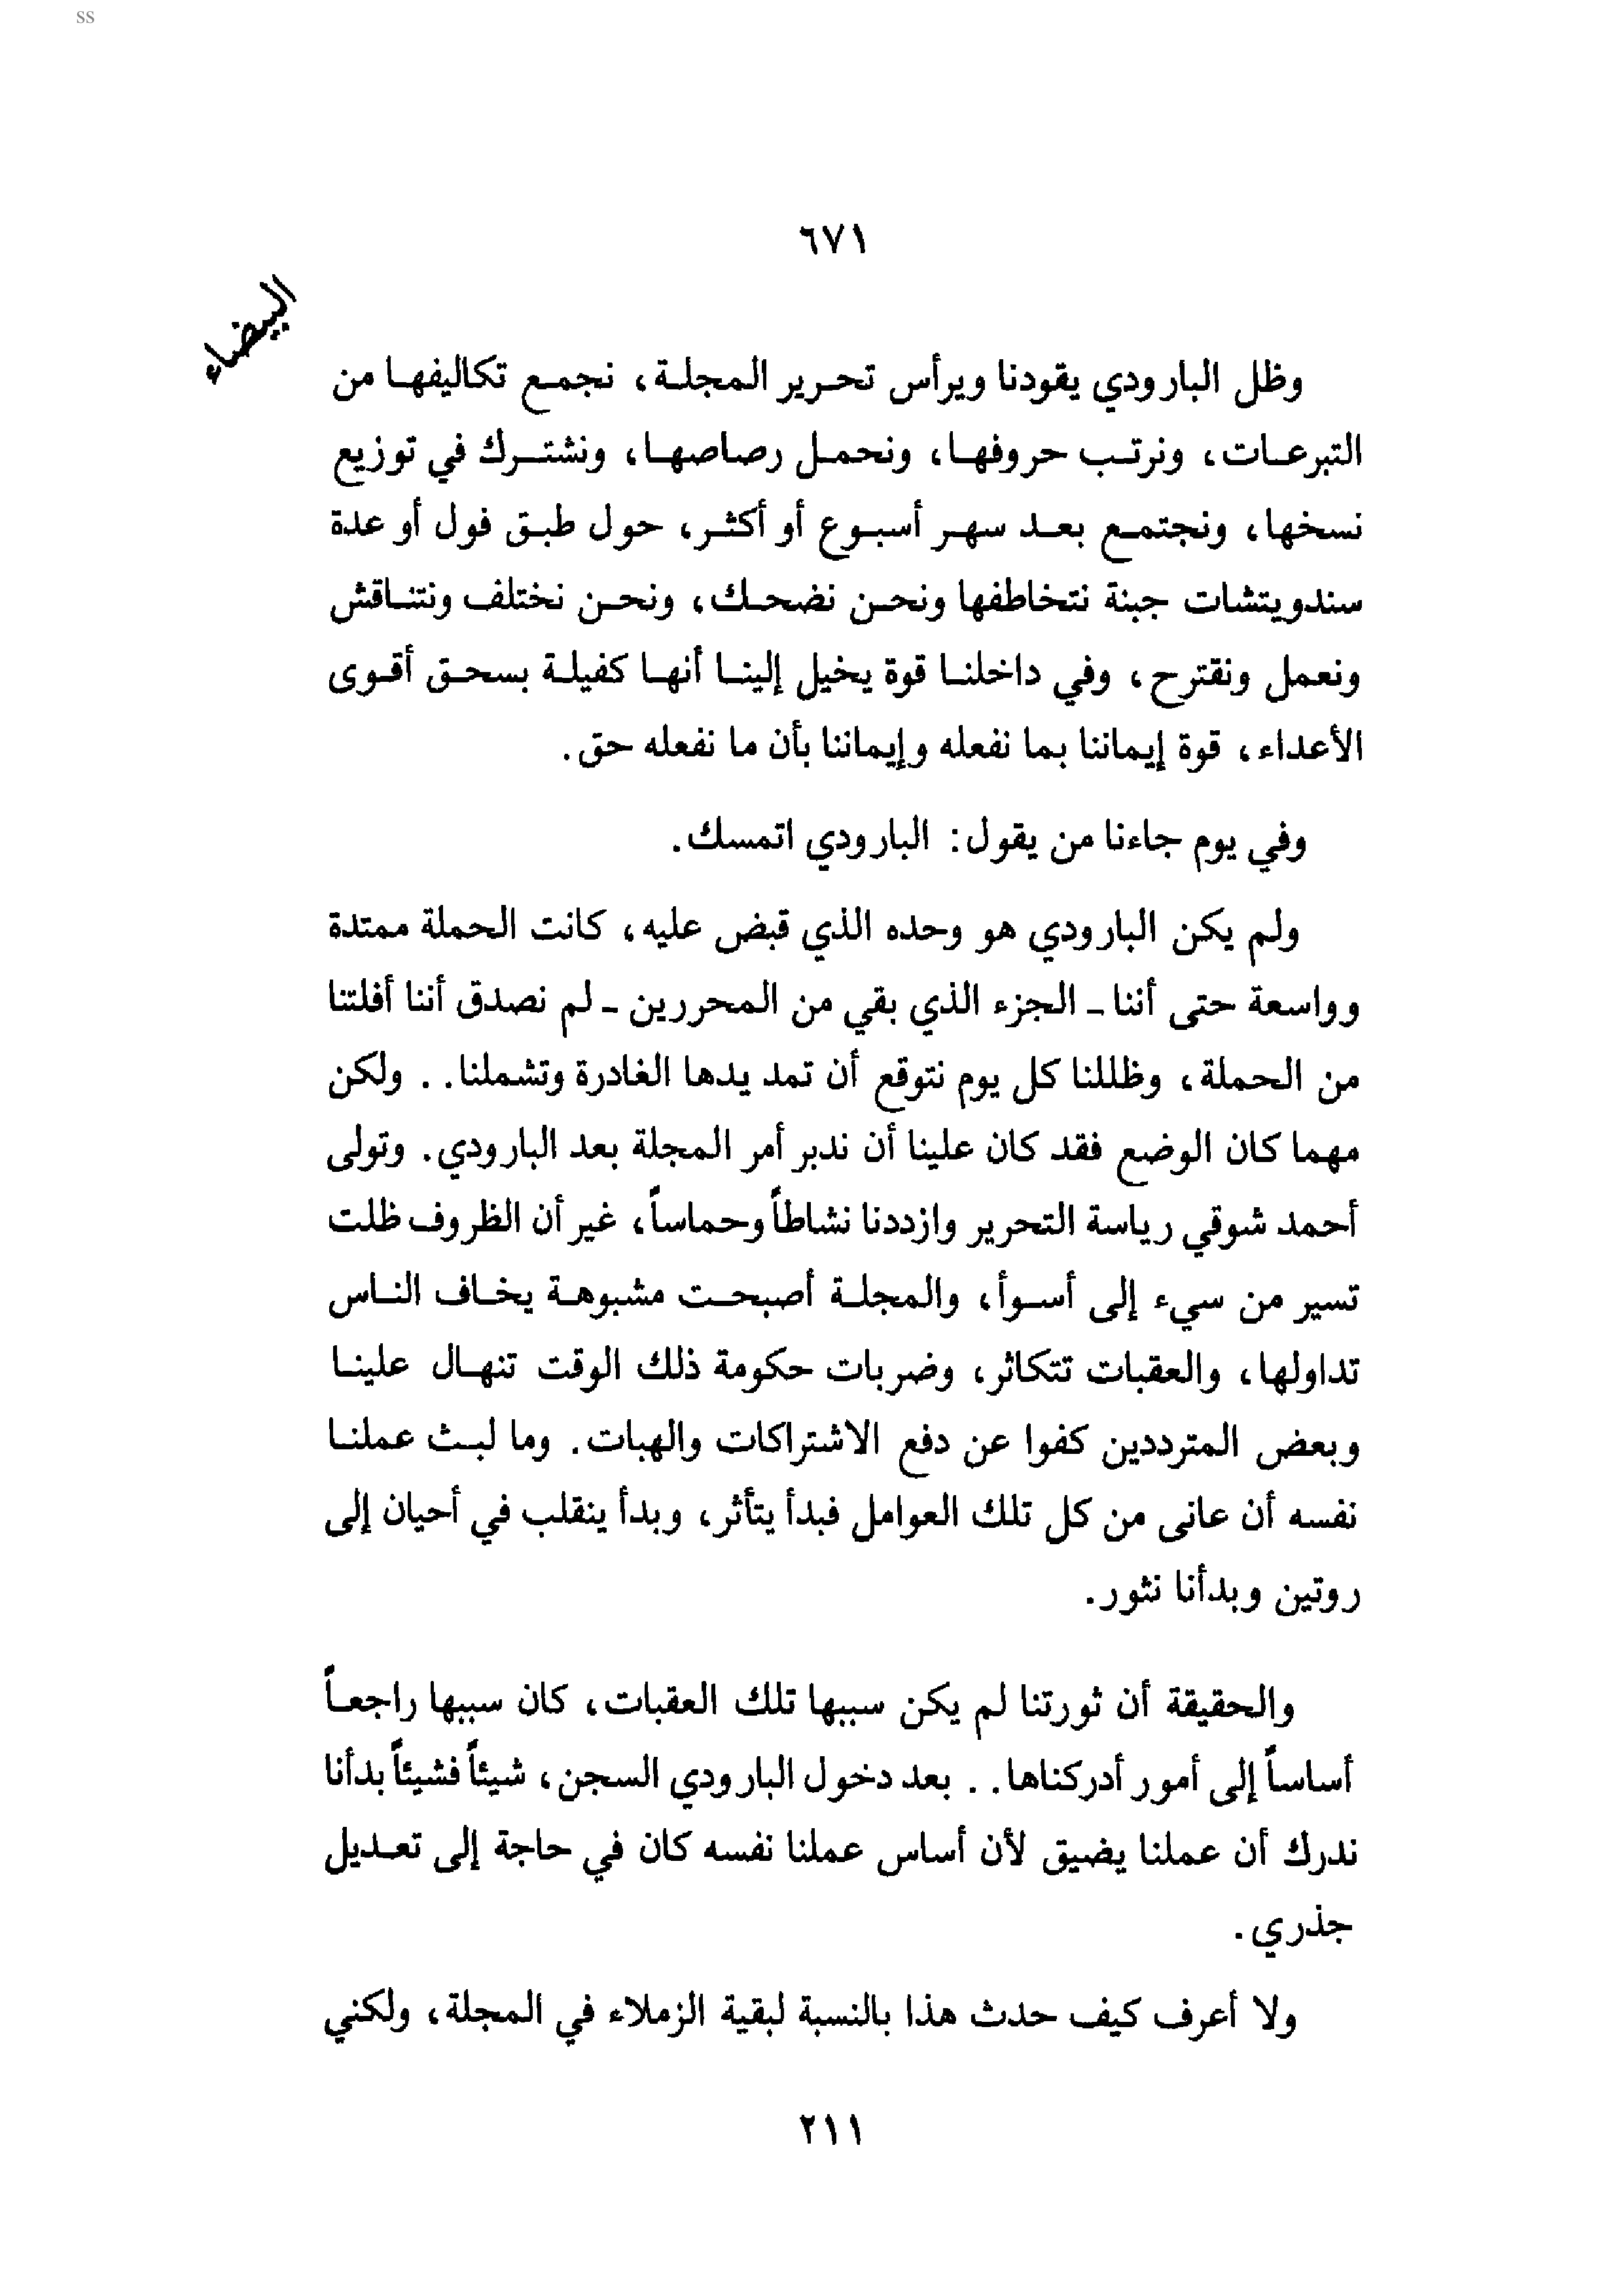 ss
٦٧١
البيضاء
وظل البارودي يقودنا ويرأس تحرير المجلة، نجمع تكاليفها من
التبرعات، ونرتب حروفها، ونحمل رصاصها، ونشترك في توزيع
نسخها، ونجتمع بعد سهر أسبوع أو أكثر، حول طبق فول أو عدة
سندويتشات جبنة نتخاطفها ونحن نضحك، ونحن نختلف ونتناقش
ونعمل ونقترح، وفي داخلنا قوة يخيل إلينا أنها كفيلة بسحق أقوى
الأعداء، قوة إيماننا بما نفعله وإيماننا بأن ما نفعله حق.
وفي يوم جاءنا من يقول: البارودي اتمسك.
ولم يكن البارودي هو وحده الذي قبض عليه، كانت الحملة ممتدة
وواسعة حتى أننا ـ الجزء الذي بقي من المحررين ـ لم نصدق أننا أفلتنا
من الحملة، وظللنا كل يوم نتوقع أن تمد يدها الغادرة وتشملنا.. ولكن
مهما كان الوضع فقد كان علينا أن ندبر أمر المجلة بعد البارودي. وتولى
أحمد شوقي رياسة التحرير وازددنا نشاطاً وحماساً، غير أن الظروف ظلت
تسير من سيء إلى أسوأ، والمجلة أصبحت مشبوهة يخاف الناس
تداولها، والعقبات تتكاثر، وضربات حكومة ذلك الوقت تنهال علينا
وبعض المترددين كفوا عن دفع الاشتراكات والهبات. وما لبث عملنا
نفسه أن عانى من كل تلك العوامل فبدأ يتأثر، وبدأ ينقلب في أحيان إلى
روتين وبدأنا نثور.
والحقيقة أن ثورتنا لم يكن سببها تلك العقبات، كان سببها راجعاً
أساساً إلى أمور أدركناها.. بعد دخول البارودي السجن، شيئاً فشيئاً بدأنا
ندرك أن عملنا يضيق لأن أساس عملنا نفسه كان في حاجة إلى تعديل
جذري.
ولا أعرف كيف حدث هذا بالنسبة لبقية الزملاء في المجلة، ولكني
٢١١